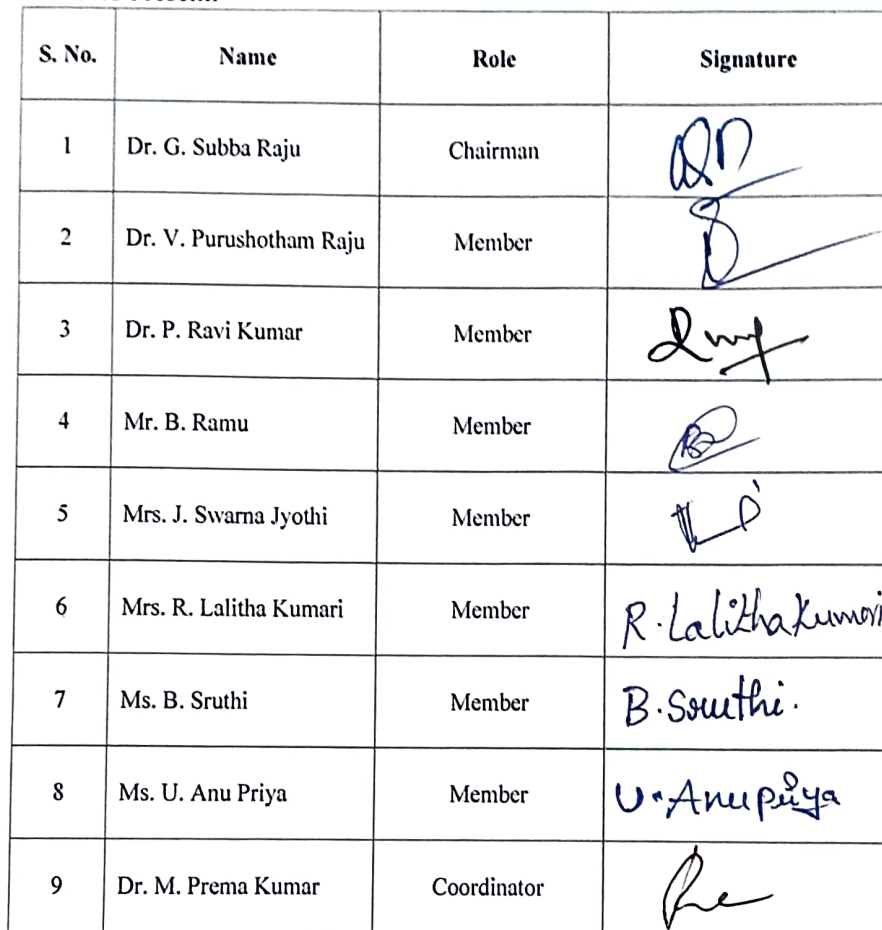 S. No. Name Role Signature
1 Dr. G. Subba Raju Chairman
2 Dr. V. Purushotham Raju Member
3 Dr. P. Ravi Kumar Member
4 Mr. B. Ramu Member
5 Mrs. J. Swarna Jyothi Member
6 Mrs. R. Lalitha Kumari Member R. Lalitha Kumari
7 Ms. B. Sruthi Member B. Sruthi.
8 Ms. U. Anu Priya Member U. Anupriya
9 Dr. M. Prema Kumar Coordinator